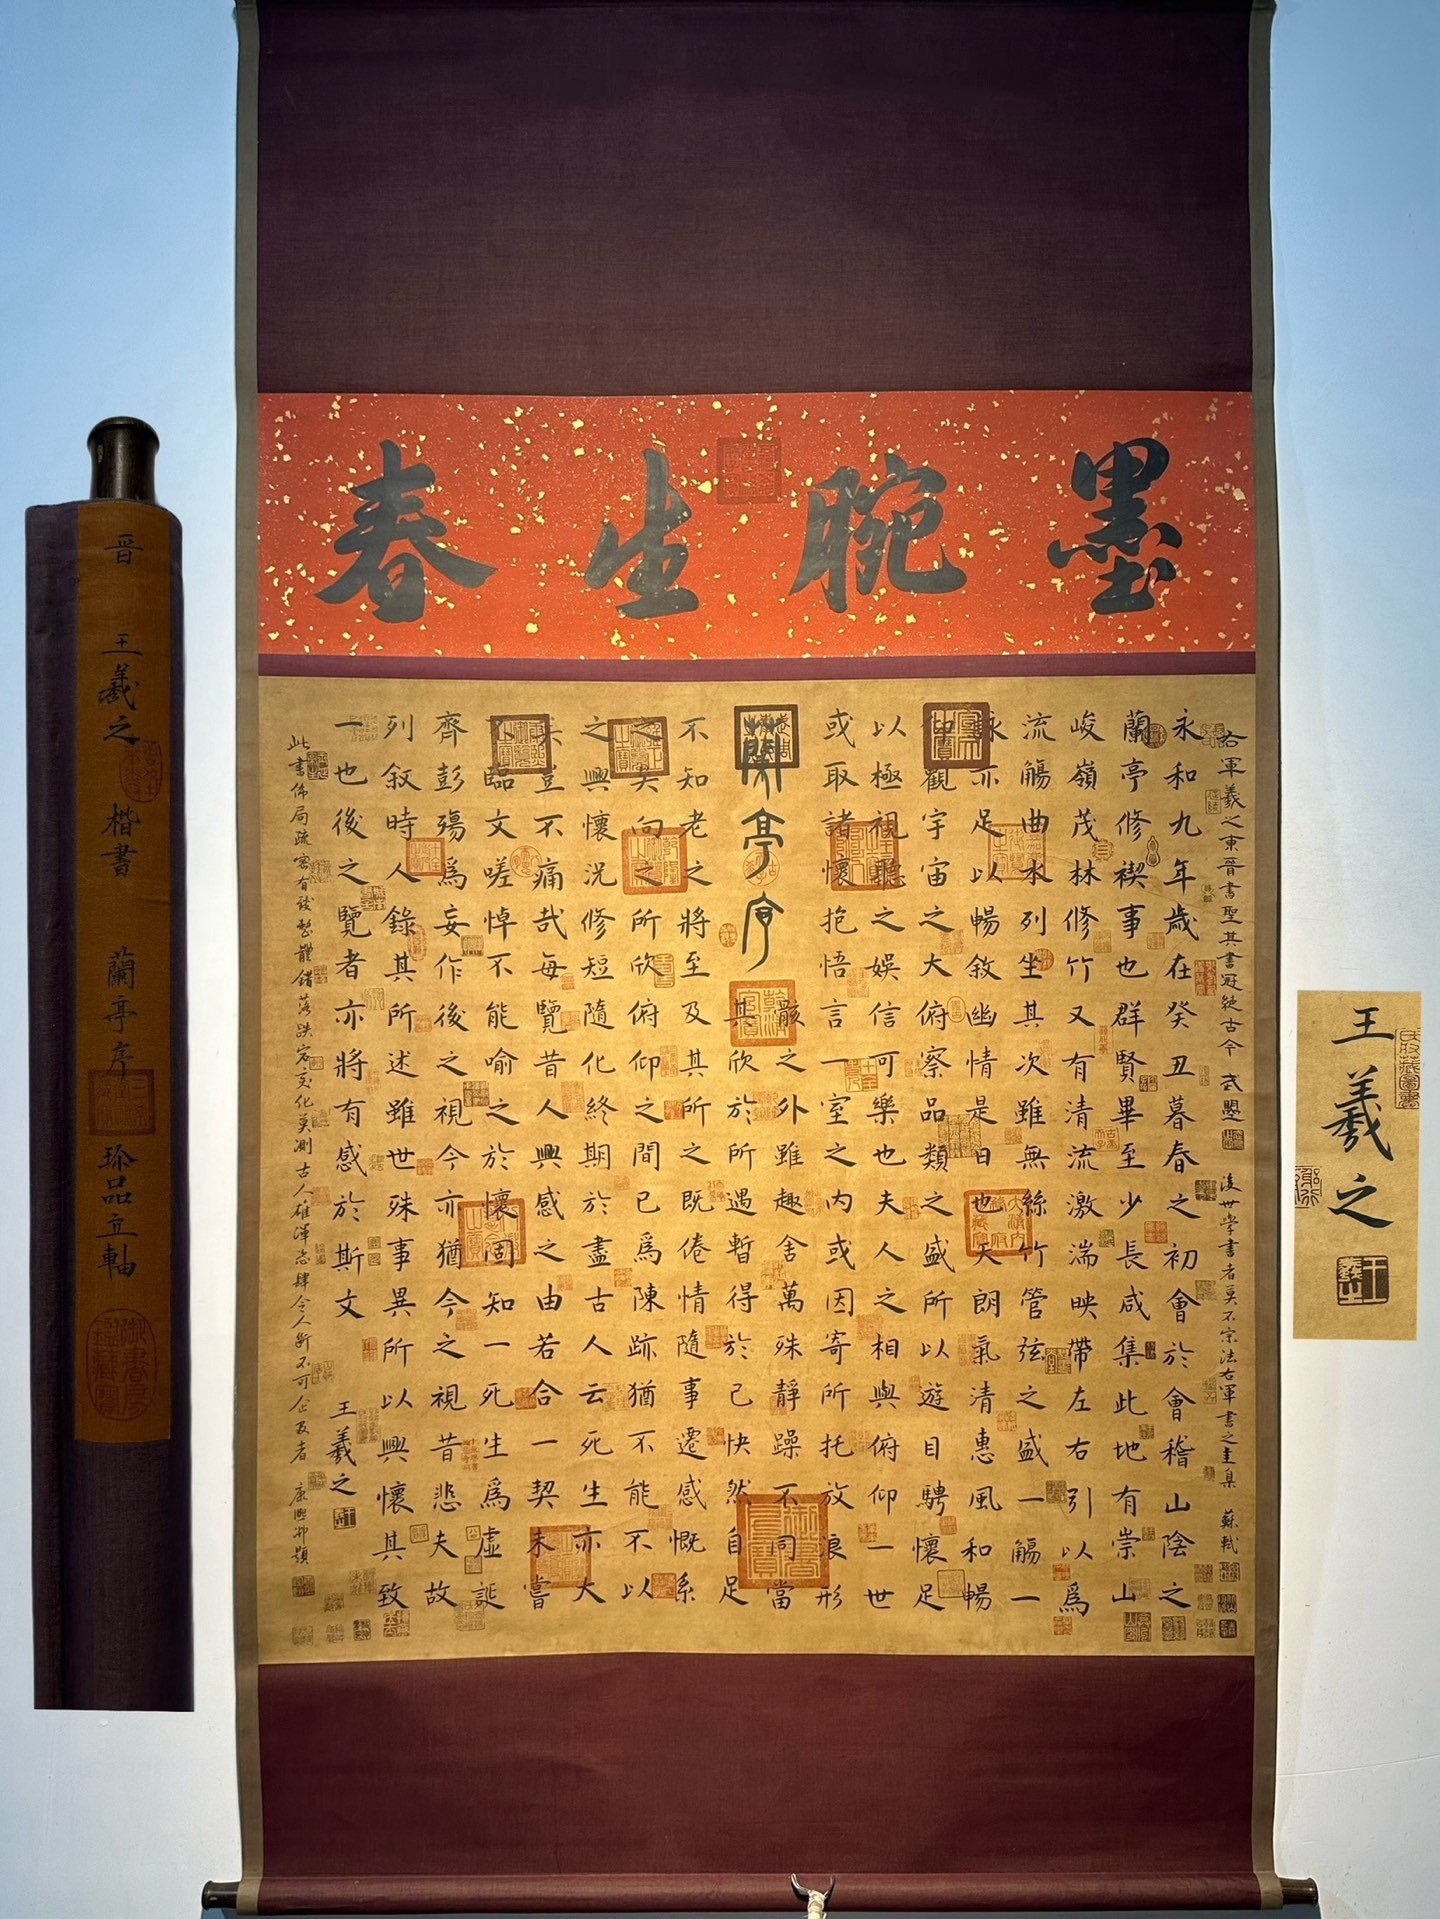 墨腕生春
右軍羲之東晉書聖其書冠絕古今 武曌 後世學書者莫不宗法右軍書之圭臬 蘇軾
永和九年歲在癸丑暮春之初會於會稽山陰之
蘭亭修禊事也群賢畢至少長咸集此地有崇山
峻嶺茂林修竹又有清流激湍映帶左右引以爲
流觴曲水列坐其次雖無絲竹管弦之盛一觴一
詠亦足以暢敘幽情是日也天朗氣清惠風和暢
仰觀宇宙之大俯察品類之盛所以遊目騁懷足
以極視聽之娛信可樂也夫人之相與俯仰一世
或取諸懷抱悟言一室之內或因寄所托放浪形
蘭亭序
骸之外雖趣舍萬殊靜躁不同當
其欣於所遇暫得於己快然自足
不知老之將至及其所之既倦情隨事遷感慨系
之矣向之所欣俯仰之間已爲陳跡猶不能不以
之興懷況修短隨化終期於盡古人云死生亦大
矣豈不痛哉每覽昔人興感之由若合一契未嘗
不臨文嗟悼不能喻之於懷固知一死生爲虛誕
齊彭殤爲妄作後之視今亦猶今之視昔悲夫故
列叙時人錄其所述雖世殊事異所以興懷其致
一也後之覽者亦將有感於斯文 王羲之
此書佈局疏密有致整體錯落跌宕變化莫測古人雄渾恣肆令人斷不可企及者 康熙御題
晋 王羲之 楷書 蘭亭序 珍品立軸
王羲之